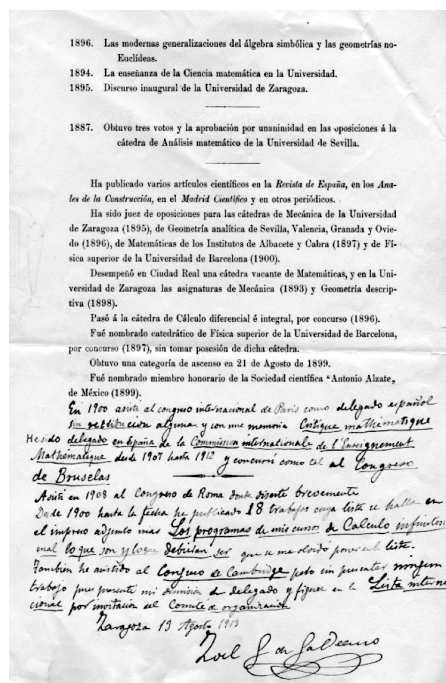 1896. Las modernas generalizaciones del álgebra simbólica y las geometrías no-
Euclídeas.
1894. La enseñanza de la Ciencia matemática en la Universidad.
1895. Discurso inaugural de la Universidad de Zaragoza.
1887. Obtuvo tres votos y la aprobación por unanimidad en las oposiciones á la
cátedra de Análisis matemático de la Universidad de Sevilla.
Ha publicado varios artículos científicos en la Revista de España, en los Ana-
les de la Construcción, en el Madrid Científico y en otros periódicos.
Ha sido juez de oposiciones para las cátedras de Mecánica de la Universidad
de Zaragoza (1895), de Geometría analítica de Sevilla, Valencia, Granada y Ovie-
do (1896), de Matemáticas de los Institutos de Albacete y Cabra (1897) y de Fí-
sica superior de la Universidad de Barcelona (1900).
Desempeñó en Ciudad Real una cátedra vacante de Matemáticas, y en la Uni-
versidad de Zaragoza las asignaturas de Mecánica (1893) y Geometría descrip-
tiva (1898).
Pasó á la cátedra de Cálculo diferencial é integral, por concurso (1896).
Fué nombrado catedrático de Física superior de la Universidad de Barcelona,
por concurso (1897), sin tomar posesión de dicha cátedra.
Obtuvo una categoría de ascenso en 21 de Agosto de 1899.
Fué nombrado miembro honorario de la Sociedad científica "Antonio Alzate„
de México (1899).
En 1900 asistí al congreso internacional de Paris como delegado español
sin retribucion alguna y con una memoria Critique mathématique
He sido delegado en España de la Commission internationale de l'Enseignement
Mathématique desde 1907 hasta 1912 y concurrí como tal al Congreso
de Bruselas
Asistí en 1908 al Congreso de Roma donde diserté brevemente
Desde 1900 hasta la fecha he publicado 18 trabajos cuya lista se halla en
el impreso adjunto mas Los programas de mis cursos de Calculo infinitesi
mal lo que son y lo que debieran ser que se me olvidó poner en lista.
Tambien he asistido al Congreso de Cambridge pero sin presentar ningun
trabajo pues presenté mi dimision de delegado y figuro en la Lista interna
cional por invitación del Comité de organización
Zaragoza 13 Agosto 1913
Zoel G. de Galdeano